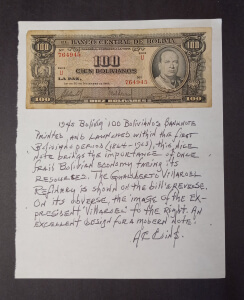 EL BANCO CENTRAL DE BOLIVIA
100 100
764945
U
100
CIEN BOLIVIANOS
U
764945
LA PAZ,
100 100
1940 Bolivia 100 Bolivianos Banknote
Printed and launched within the first
Boliviano period (1864-1963), this nice
note brings the importance of once
frail Bolivian economy taking its
resources. The Gualberto Villaroel
Refinary is shown on the bill's reverse.
On its obverse, the image of the ex-
president "Villaroel" to the right. An
excellent design for a modern note!